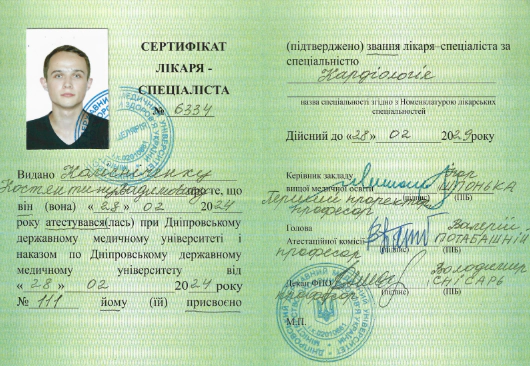 СЕРТИФІКАТ
ЛІКАРЯ -
СПЕЦІАЛІСТА
№ 6334
Видано Каменіченку
Костянтину Вадимовичу про те, що
він (вона) «28» 02 2024
року атестувався(лась) при Дніпровському
державному медичному університеті і
наказом по Дніпровському державному
медичному університету від
« 28 » 02 2024 року
№ 111 йому (їй) присвоєно
(підтверджено) звання лікаря–спеціаліста за
спеціальністю
Кардіологія
назва спеціальності згідно з Номенклатурою лікарських
спеціальностей
Дійсний до «28» 02 2029року
Керівник закладу
вищої медичної освіти
Перший проректор
професор
(підпис)
Ігор
ШПОНЬКА
(ПІБ)
Голова
Атестаційної комісії
професор
(підпис)
Валерій
ПОТАБАШНІЙ
(ПІБ)
Декан ФПО
професор
(підпис)
Володимир
СНІСАРЬ
(ПІБ)
М.П.